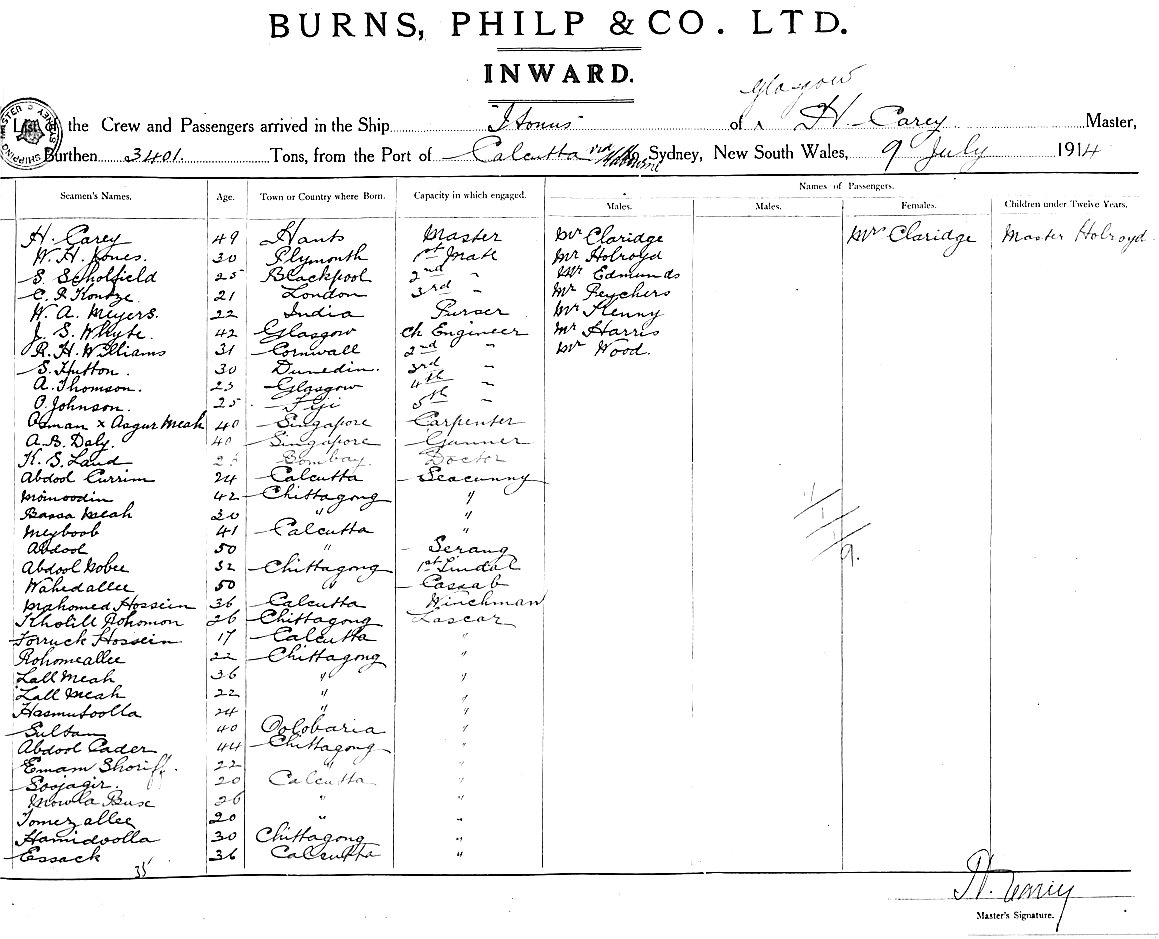 BURNS, PHILP & CO. LTD.
INWARD.
Glasgow
the Crew and Passengers arrived in the Ship Itonus of H. Carey Master,
Burthen 3401. Tons, from the Port of Calcutta via Melbourne Sydney, New South Wales, 9 July 1914
Names of Passengers.
Seamen's Names. Age. Town or Country where Born. Capacity in which engaged. Males. Males. Females. Children under Twelve Years.
H. Carey 49 Hants Master Mr Claridge Mrs Claridge Master Holroyd
W. H. Jones. 30 Plymouth 1st Mate Mr Holroyd
S. Scholfield 25 Blackpool 2nd " Mr Edmunds
21 London 3rd " Mr Peychers
W. A. Meyers. 22 India Purser Mr Kenny
J. S. Whyte. 42 Glasgow Ch Engineer Mr Harris
R. H. Williams 31 Cornwall 2nd " Mr Wood.
S. Hutton. 30 Dunedin. 3rd "
A. Thomson. 23 Glasgow 4th "
O. Johnson. 25 Fiji 5th "
Osman x Asgur Meah 40 Singapore Carpenter
A. B. Daly. 40 Singapore Gunner
K. S. Laud Bombay. Doctor
Abdool Currim 24 Calcutta Seacunny
Moinoodin 42 Chittagong "
Bassa Meah 30 " "
Meyboob 41 Calcutta "
Abdool 50 " Serang
Abdool Nobee 32 Chittagong 1st Tindal
Wahedallee 50 " Cassab
Mahomed Hossein 36 Calcutta Winchman
Kholill Rohomon 26 Chittagong Lascar
Forruck Hossein 17 Calcutta "
Rohomeallee 22 Chittagong "
Lall Meah 36 " "
Lall Meah 22 " "
Hasmutoolla 24 " "
Sultan 40 Oolobaria "
Abdool Cader 44 Chittagong "
Emam Shoriff. 22 " "
Soojagir. 20 Calcutta "
Mowla Buse 26 " "
Tomezallee 20 " "
Hamidoolla 30 Chittagong "
Essack 36 Calcutta "
35
H. Carey
Master's Signature.